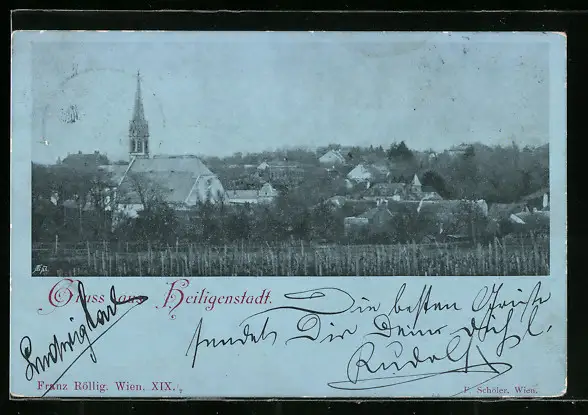 Gruss aus Heiligenstadt.
Die besten Grüße
sendet Dir Dein
Rudolf
Franz Röllig. Wien, XIX.
F. Schöler, Wien.